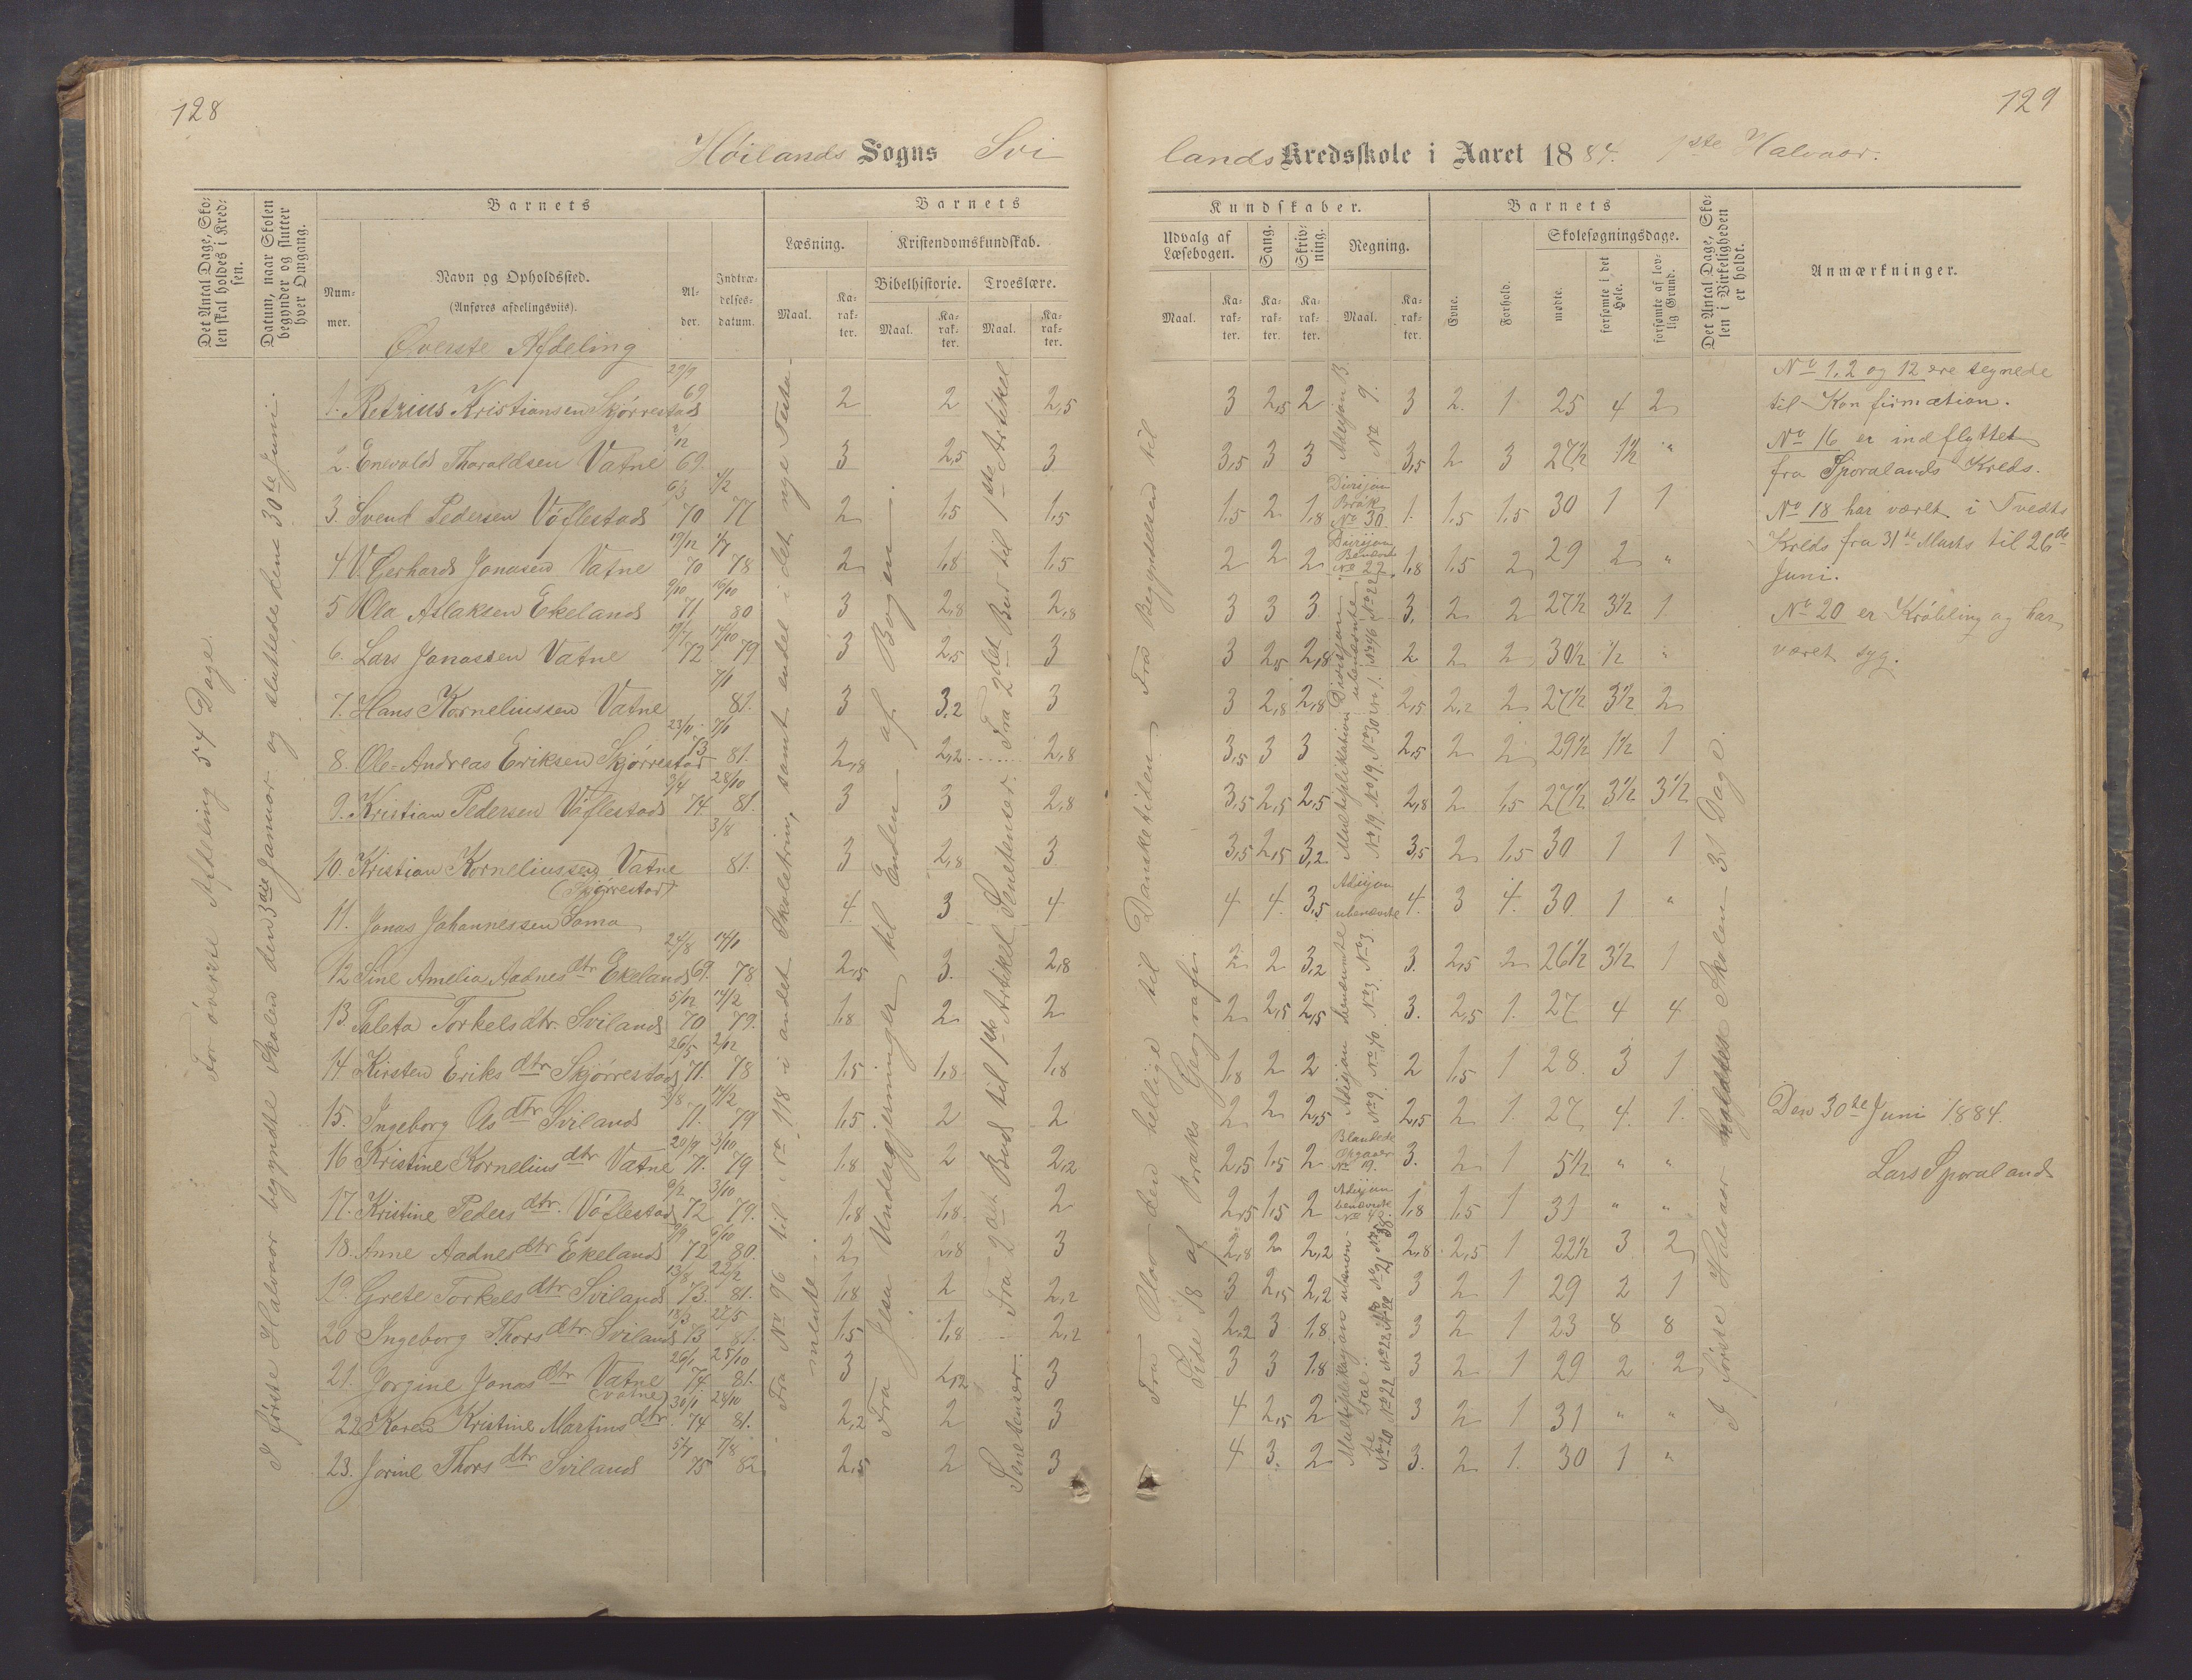 128
129
Høilands Sogns Svi
lands Kredsskole i Aaret 1884. 1ste Halvaar.
Det Antal Dage, Sko-
len skal holdes i Kred-
sen.
Datum, naar Skolen
begynder og slutter
hver Omgang.
Barnets
Num-
mer.
Navn og Opholdssted.
(Anføres afdelingsviis).
Al-
der.
Indtræ-
delses-
datum.
Barnets
Læsning.
Kristendomskundskab.
Bibelhistorie. Troeslære.
Maal. Ka-
rak-
ter. Maal. Ka-
rak-
ter. Maal. Ka-
rak-
ter.
Kundskaber.
Udvalg af
Læsebogen.
Sang.
Skriv-
ning.
Regning.
Maal. Ka-
rak-
ter. Ka-
rak-
ter. Ka-
rak-
ter. Maal. Ka-
rak-
ter.
Barnets
Evne.
Forhold.
Skolesøgningsdage.
mødte.
forsømte i det
Hele.
forsømte af lov-
lig Grund.
Det Antal Dage, Sko-
len i Virkeligheden
er holdt.
Anmærkninger.
Øverste Afdeling
For øverste Afdeling 54 Dage.
I første Halvaar begyndte Skolen den 3die Januar og sluttede den 30te Juni.
Fra No 96 til No 118 i andet Skoletrin, samt endel i det nye Testa-
mente.
Fra Jesu Undergjerninger til Enden af Bogen.
Fra 2det Bud til 1ste Artikel
Sentenser.
Fra 2det Bud til 1ste Artikel
Sentenser.
Fra Olav den hellige til Dansketiden. Fra Begyndelsen til
Side 18 af Geografi.
I første Halvaar holdtes Skolen 31 Dage.
1. Retzius Kristiansen Skjørrestad 29/9 69 2 2 2,5 3 2,5 2 Adisjon B. No 9. 3 2 1 25 4 2
2. Enevald Tharaldsen Vatne 2/12 69. 3 2,5 3 3,5 3 3 3,5 2 3 27½ 1½ "
3. Svend Pedersen Vóflestad 6/3 70 1/2 77 2 1,5 1,5 1,5 2 1,8 Divisjon Brøk No 30 1. 1,5 1,5 30 1 1
4. V. Gerhard Jonasen Vatne 19/12 70 1/7 78 2 1,8 1,5 2 2 2 Divisjon Benævnte No 22 1,8 1,5 2 29 2 "
5 Ola Aslaksen Ekeland 9/10 71. 16/10 80 3 2,8 2,8 3 3 3 3. 2 2 27½ 3½ 1
6. Lars Jonassen Vatne 19/7 72 14/10 79 3 2,5 3 3 2,5 2,8 2 2 2 30½ ½ "
7. Hans Korneliussen Vatne 7/1 81. 3 3,2 3 3 2,8 2,8 2,5 2,2 2 27½ 3½ 2
8. Ole Andreas Eriksen Skjørrestad 23/11 73 7/1 81. 2,8 2,2 2,8 3,5 3 3 2,5 2 2 29½ 1½ 1
9. Kristian Pedersen Vóflestad 3/4 74 28/10 81. 3 3 2,8 3,5 2,5 2,5 2,8 2 1,5 27½ 3½ 3½
10. Kristian Korneliussen Vatne 3/8 81. 3 2,8 3 3,5 2,5 3,2 3,5 2 1,5 30 1 1
(Skjørrestad)
11. Jonas Johannessen Soma 4. 3 4 4 4. 3,5 Adisjon ubenævnte 4. 3 4. 30 1 "
12 Sine Amelia Aadnesdtr Ekeland 24/8 69. 14/1 78. 2,5 3. 2,8 2 2 3,2 3. 2,5 2 26½ 3½ 1
13. Taleta Torkelsdtr. Sviland 5/12 70 14/2 79. 1,8 2 2 2 2,5 2,5 3. 2,5 1. 27 4 4
14. Kirsten Eriksdtr Skjørrestad 26/5 71. 2/12 78 1,5 1,8 1,8 1,8 2 2 2 1,5 1 28. 3 1
15. Ingeborg Olsdtr Sviland 3/8 71. 14/2 79 1,5. 2 2 2 2 2,5 2,5 2 1. 27 4. 1.
16 Kristine Korneliusdtr Vatne 20/9 71. 3/10 79 1,8 2 2,2 2,5 1,5 2 Blandede Opgaver No 19. 3. 2 1 5½ " "
17. Kristine Pedersdtr. Vóflestad 9/2 72 3/10 79. 1,8 1,8. 2 2,5 1,5 2 Adisjon benævnte 1,8 1,5 1 31 " "
18. Anne Aadnesdtr Ekeland 9/9 72 6/10 80. 2 2,8 3 2,8 2 2,2 2,8 2,5 1 22½ 3 2
19. Grete Torkelsdtr Sviland 13/8 73. 22/2 81. 1,8 2 2,2 3 2,5 2,2 3 2 1 29 2 1
20 Ingeborg Thorsdtr Sviland 18/3 73 27/5 81. 1,5 1,8 2,2 2,2 3 1,8. 3 2 1 23 8 8
21. Jorgine Jonasdtr Vatne 26/1 74 25/10 81. 3 2,2 3 3 3 1,8 3 2 1 29 2 2
(Vatne)
22 Karen Kristine Martinsdtr. 30/1 74 24/10 81. 2,2 2 3 4 2,5 2 3 2 1 31 " "
23. Jorine Thorsdtr Sviland 5/7 75 7/8 82 2,5 2 3 4 3. 2 3. 2 1. 30 1 "
No 1, 2 og 12 ere tegnede
til Konfirmation.
No 16 er indflyttet
fra Sporalands Kreds.
No 18 har været i Tvedts
Kreds fra 31te Marts til 26de
Juni.
No 20 er Krøbling og har
været syg.
Den 30te Juni 1884.
Lars Sporaland